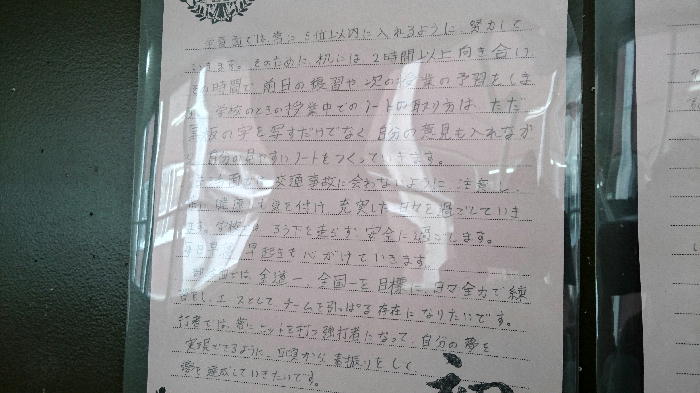 学習面では、常に5位以内に入れるように、努力して
いきます。そのために、机には2時間以上向き合い
その時間で、前日の復習や次の授業の予習をしま
す。学校のときの授業中でのノートの取り方は、ただ
黒板の字を写すだけでなく、自分の意見も入れなが
ら、自分が見やすいノートをつくっていきます。
交通事故に会わないように注意し、
健康にも気を付け、充実した日々を過ごしていき
ます。学校では、ろうかを走らず、安全に過ごします。
毎日早寝、早起きも心がけていきます。
では、全道一、全国一を目標に、日々全力で練
習をし、エースとしてチームを引っぱる存在になりたいです。
打者では、常にヒットを打つ強打者になって、自分の夢を
実現できるように、日頃から素振りをして
夢を達成していきたいです。